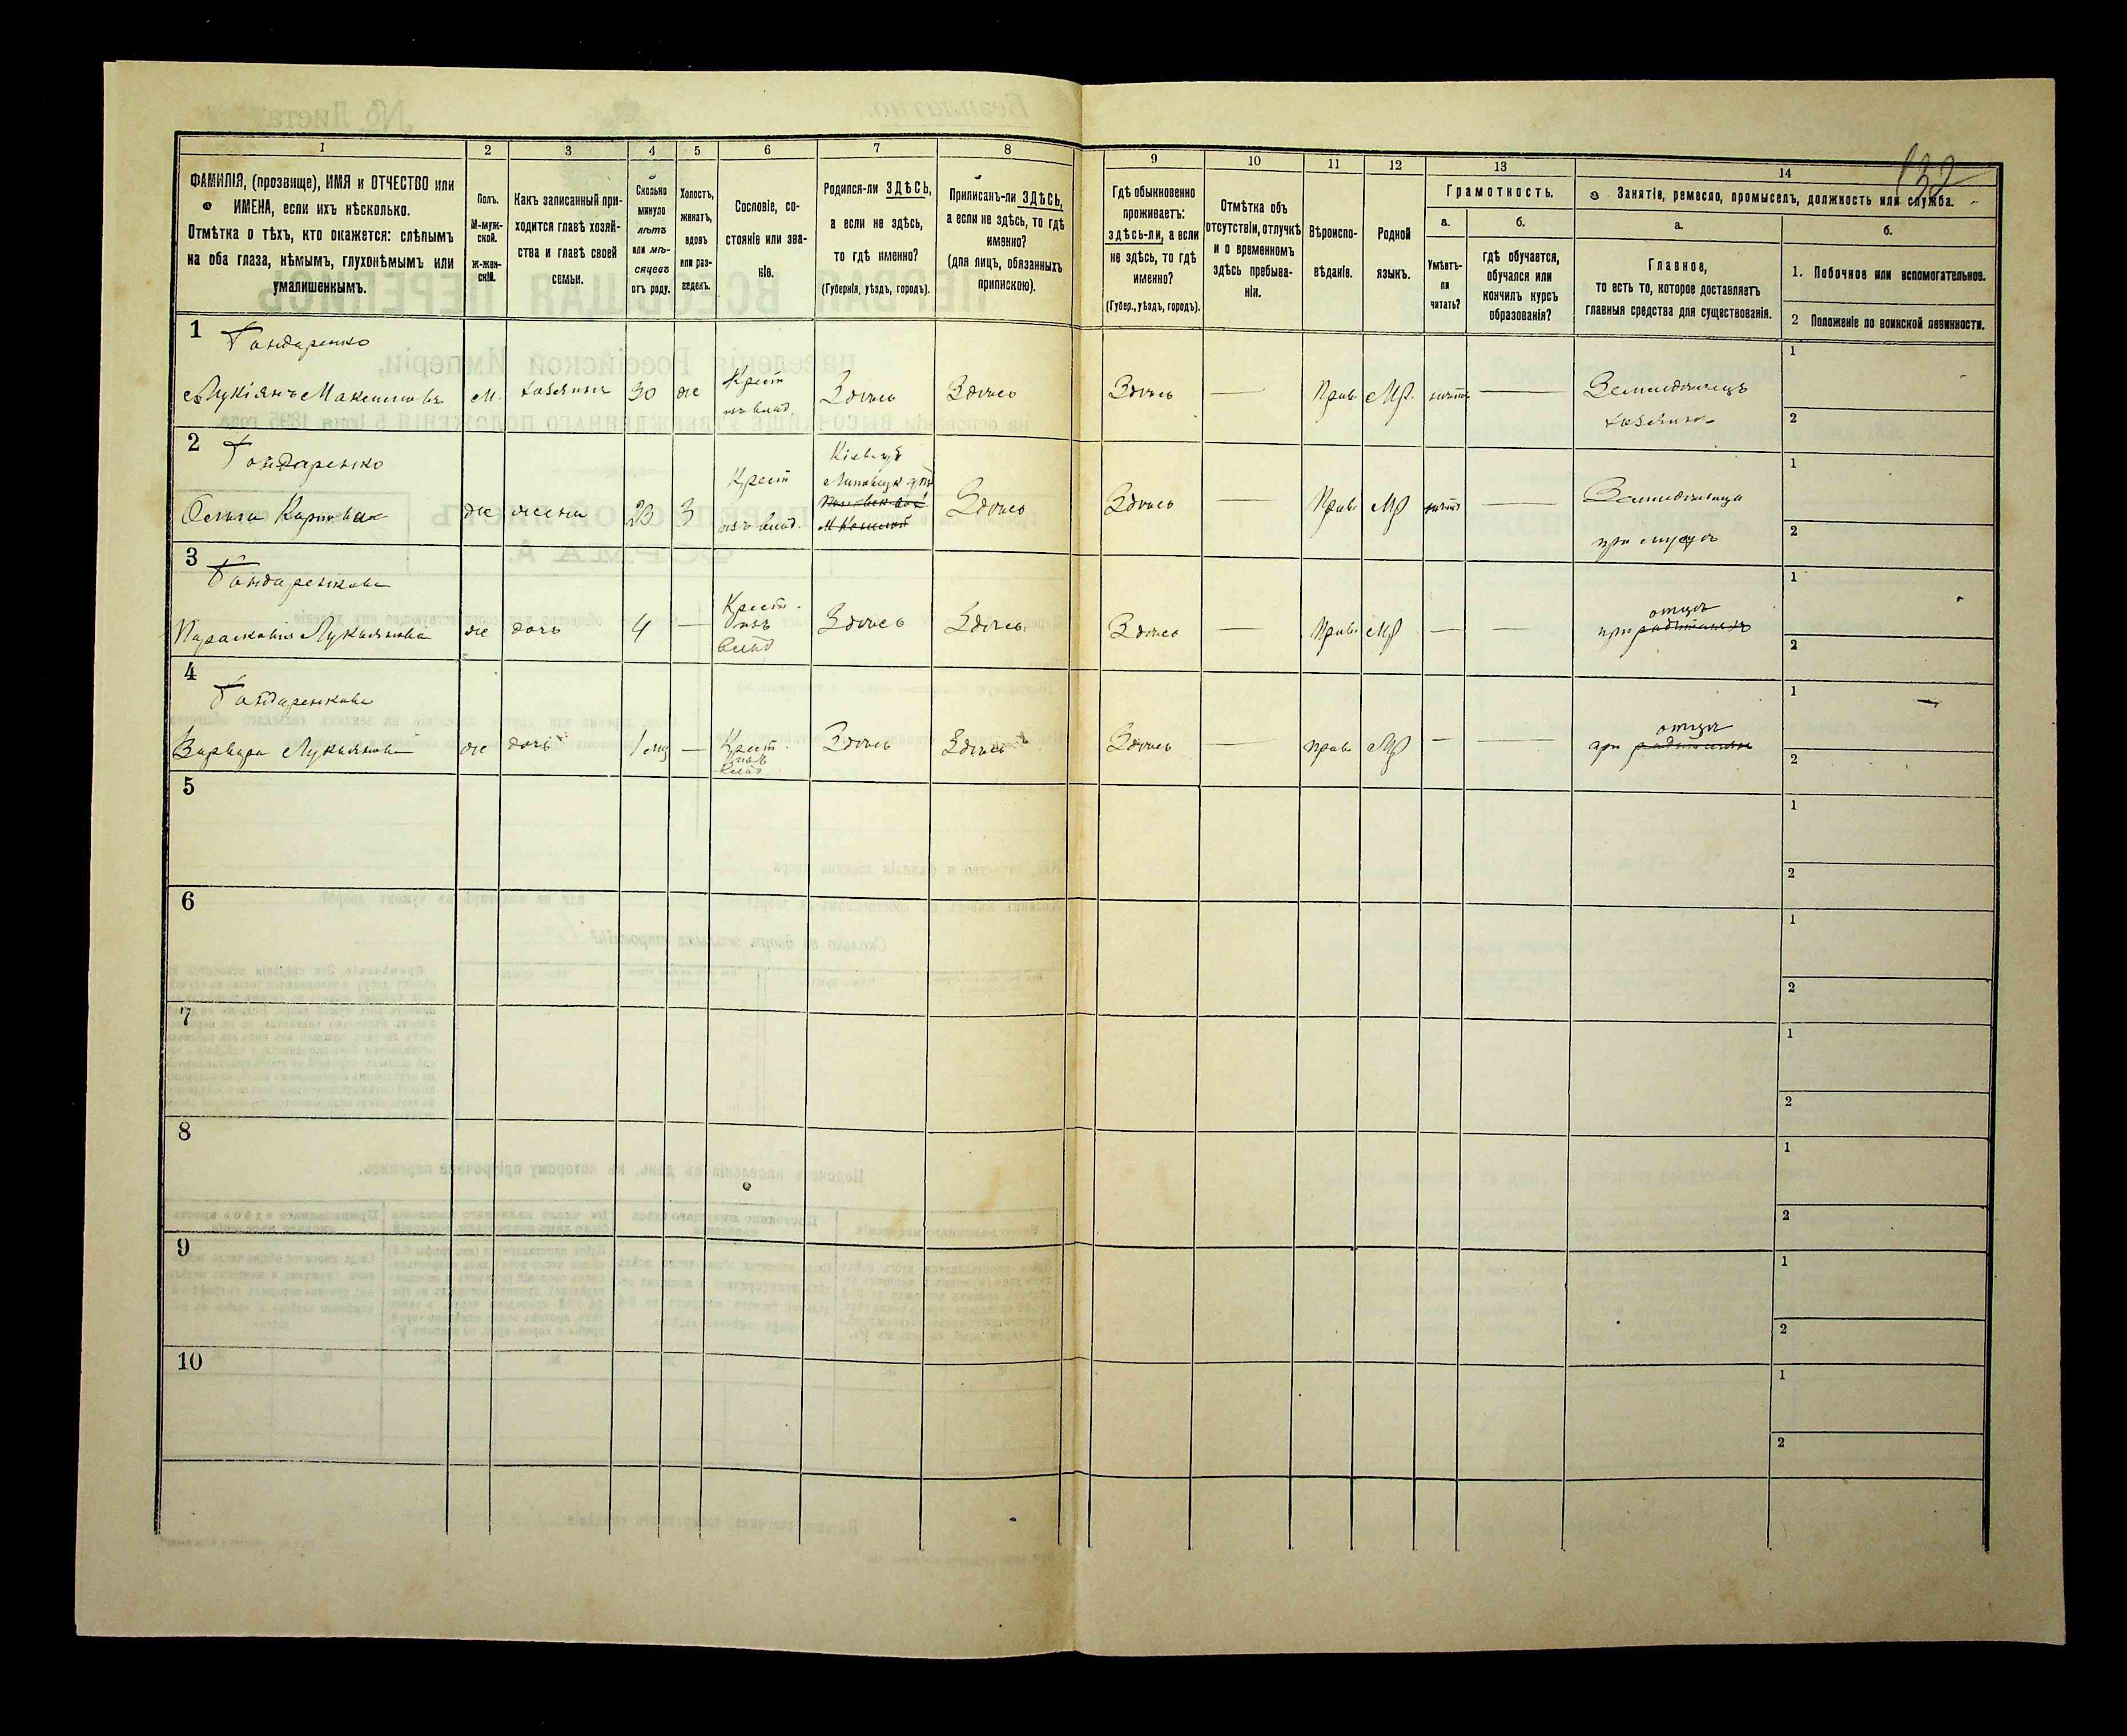 132
1 2 3 4 5 6 7 8 9 10 11 12 13 14
ФАМИЛІЯ, (прозвище), ИМЯ и ОТЧЕСТВО или
ИМЕНА, если ихъ нѣсколько.
Отмѣтка о тѣхъ, кто окажется: слѣпымъ
на оба глаза, нѣмымъ, глухонѣмымъ или
умалишеннымъ.
Полъ.
М-муж-
ской.
ж-жен-
скій.
Какъ записанный при-
ходится главѣ хозяй-
ства и главѣ своей
семьи.
Сколько
минуло
лѣтъ
или мѣ-
сяцевъ
отъ роду.
Холостъ,
женатъ,
вдовъ
или раз-
веденъ.
Сословіе, со-
стояніе или зва-
ніе.
Родился-ли ЗДѢСЬ,
а если не здѣсь,
то гдѣ именно?
(Губернія, уѣздъ, городъ).
Приписанъ-ли ЗДѢСЬ,
а если не здѣсь, то гдѣ
именно?
(для лицъ, обязанныхъ
припискою).
Гдѣ обыкновенно
проживаетъ:
здѣсь-ли, а если
не здѣсь, то гдѣ
именно?
(Губер., уѣздъ, городъ).
Отмѣтка объ
отсутствіи, отлучкѣ
и о временномъ
здѣсь пребыва-
ніи.
Вѣроиспо-
вѣданіе.
Родной
языкъ.
Грамотность.
а.
Умѣетъ-
ли
читать?
б.
гдѣ обучается,
обучался или
кончилъ курсъ
образованія?
Занятія, ремесло, промыселъ, должность или служба.
а.
Главное,
то есть то, которое доставляетъ
главныя средства для существованія.
б.
1. Побочное или вспомогательное.
2 Положеніе по воинской повинности.
1 Гондаренко
Лукіянъ Максимовъ м. хозяинъ 30 же Крест Здѣсь Здѣсь Здѣсь — Прав. Мр. — Земледѣлецъ
изъ влад. хозяинъ
1
2
2 Гондаренко
Кіевск.
Крест
Карповна же жена 23 З Здѣсь Здѣсь — Прав. Мр —
изъ влад.
при мужѣ
1
2
3 Гондаренкова
Параскевія Лукьянова же дочь 4 — Крест. Здѣсь Здѣсь Здѣсь — Прав. Мр — — при родителяхъ
изъ
влад
отцѣ
1
2
4 Гондаренкова
Варвара Лукьянова же дочь 1 мц — Крест. Здѣсь Здѣсь Здѣсь — прав. Мр — — при родителяхъ
изъ
влад
отцѣ
1
2
5
1
2
6
1
2
7
1
2
8
1
2
9
1
2
10
1
2